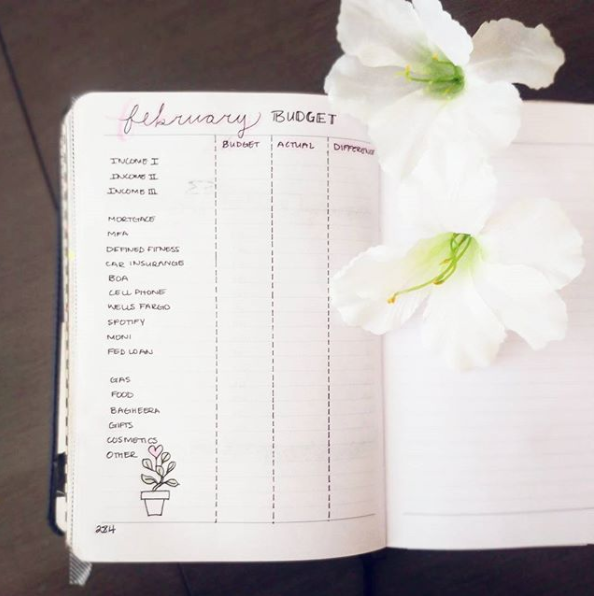 february BUDGET
BUDGET ACTUAL DIFFERENCE
INCOME I
INCOME II
INCOME III
MORTGAGE
MFA
DEFINED FITNESS
CAR INSURANCE
BOA
CELL PHONE
WELLS FARGO
SPOTIFY
MOM
FED LOAN
GAS
FOOD
BAGHEERA
GIFTS
COSMETICS
OTHER
284